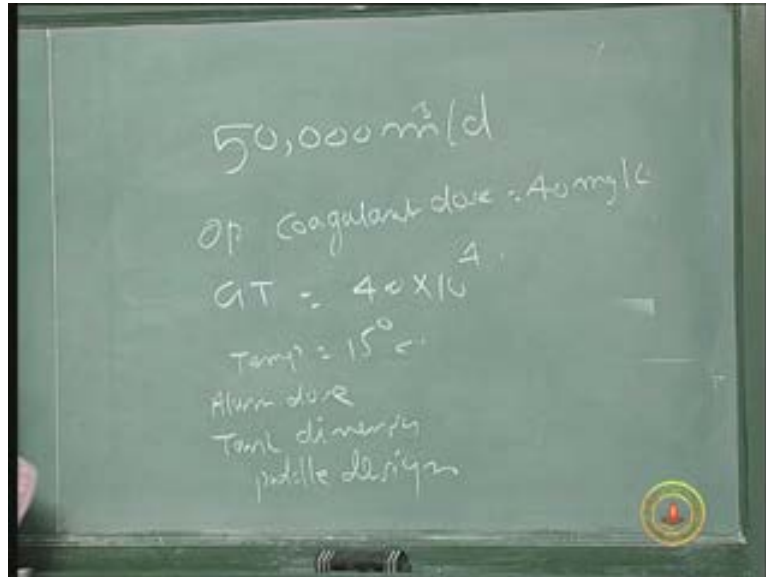 50,000 m³/d
Op Coagulant dose = 40 mg/L
GT = 40X10⁴
Temp = 15⁰c.
Alum dose
Tank dimensi
paddle design